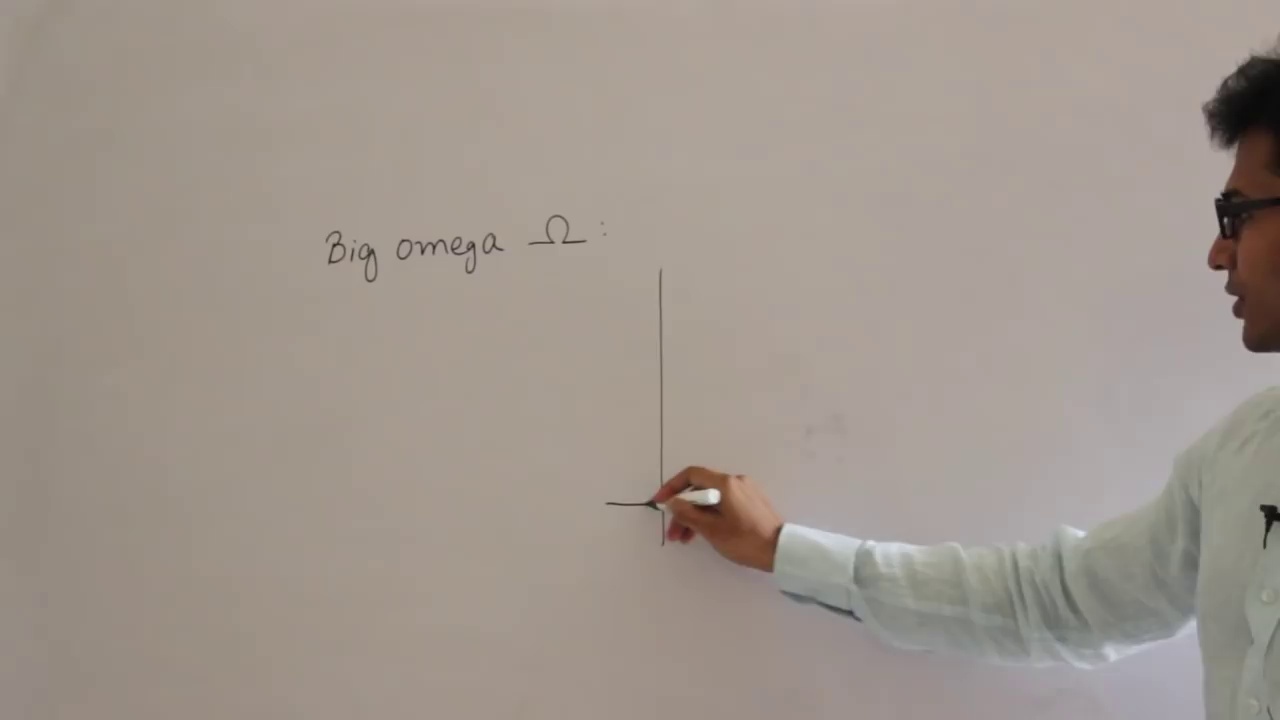 Big omega Ω: